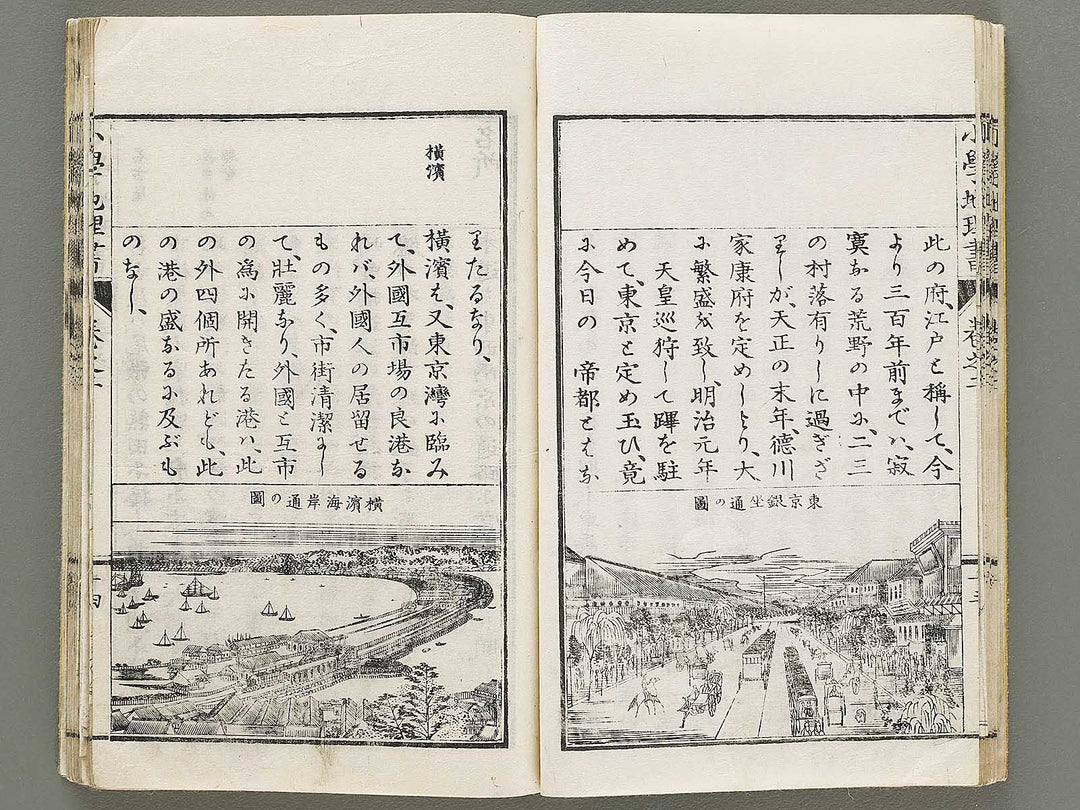 此の府、江戸と稱して、今
より三百年前までハ、寂
寞なる荒野の中に、二三
の村落有りしに過ぎざ
りしが、天正の末年、德川
家康府を定めしより、大
に繁盛を致し、明治元年
天皇巡狩して蹕を駐
めて、東京と定め玉ひ、竟
に今日の 帝都とはな
東京銀坐通の圖
小學地理書
卷之二
橫濱
りたるなり、
橫濱は、又東京灣に臨み
て、外國互市場の良港な
れバ、外國人の居留せる
もの多く、市街清潔にし
て、壯麗なり、外國と互市
の爲に開きたる港ハ、此
の外四個所あれども、此
の港の盛なるに及ぶも
のなし、
橫濱海岸通の圖
小學地理書
卷之二
十四